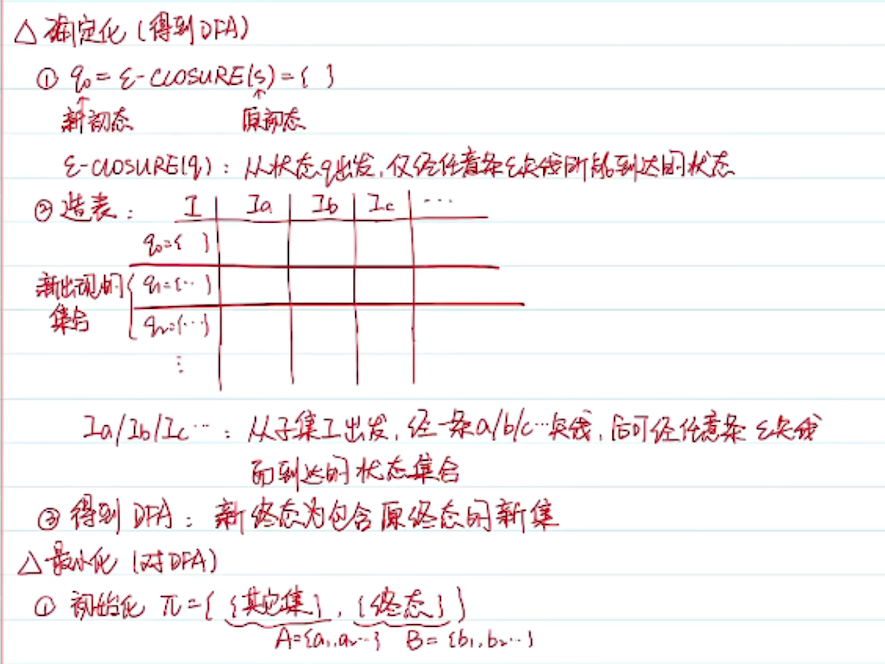 △ 确定化 (得到DFA)
① q₀ = ε-CLOSURE(s) = { }
新初态 原初态
ε-CLOSURE(q): 从状态q出发, 仅经任意条ε矢线所能到达的状态
② 造表: I Ia Ib Ic ...
q₀={ }
新出现的 q₁={...}
集合 q₂={...}
⋮
Ia/Ib/Ic...: 从子集I出发, 经一条a/b/c...矢线, 后可经任意条ε矢线
而到达的状态集合
③ 得到DFA: 新终态为包含原终态的新集
△ 最小化 (对DFA)
① 初始化 π={ {其它集}, {终态} }
A={a₁,a₂...} B={b₁,b₂...}